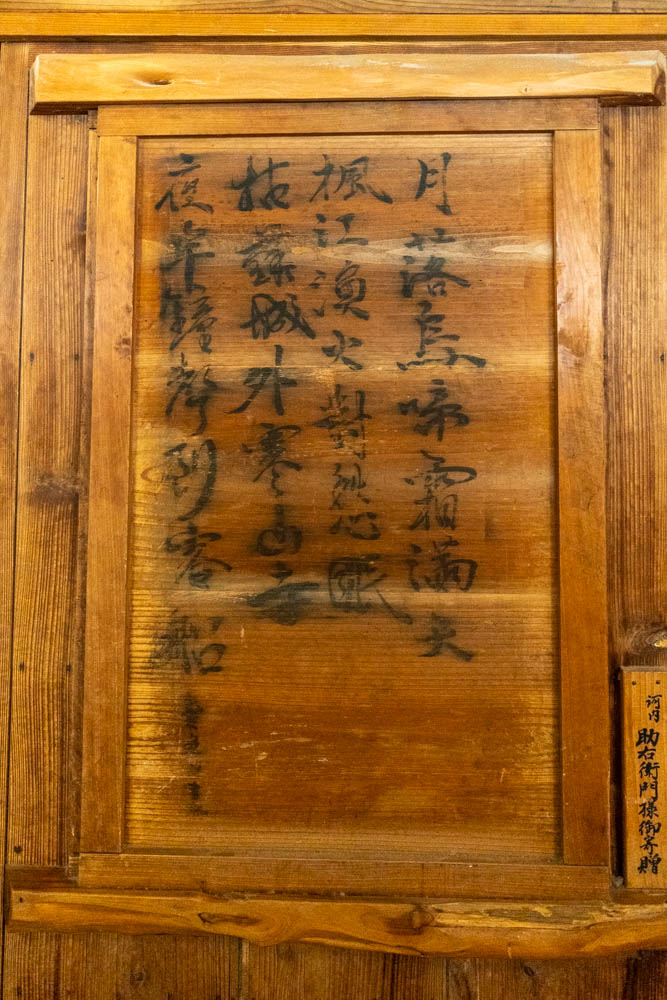 月落烏啼霜滿天
楓江漁火對愁眠
姑蘇城外寒山寺
夜半鐘聲到客船
河内
助右衛門様御寄贈